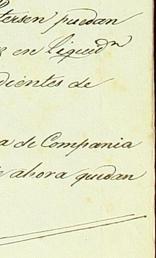 Petersen puedan
en liquidn
dientes de
a de Compania
ahora quedan